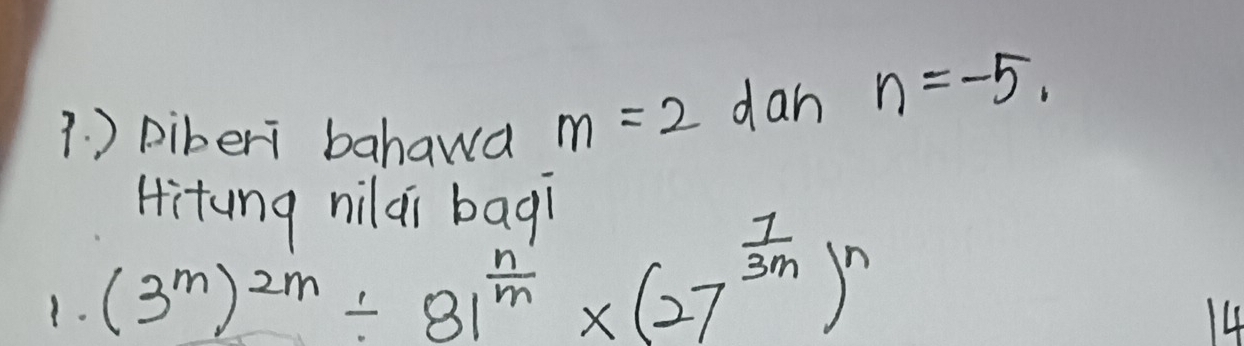 1.) Diberi bahawa m = 2 dan n = -5.
Hitung nilai bagi
1. (3^m)^{2m} ÷ 81^{\frac{n}{m}} × (27^{\frac{1}{3m}})^n
14